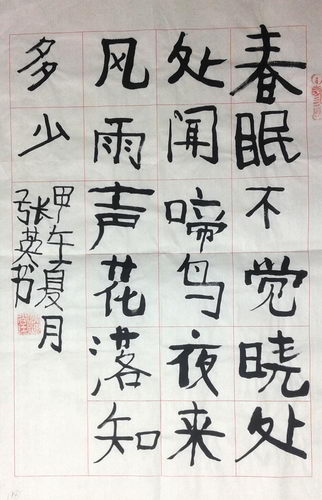 春眠不觉晓处
处闻啼鸟夜来
风雨声花落知
多少
甲午夏月
张英书